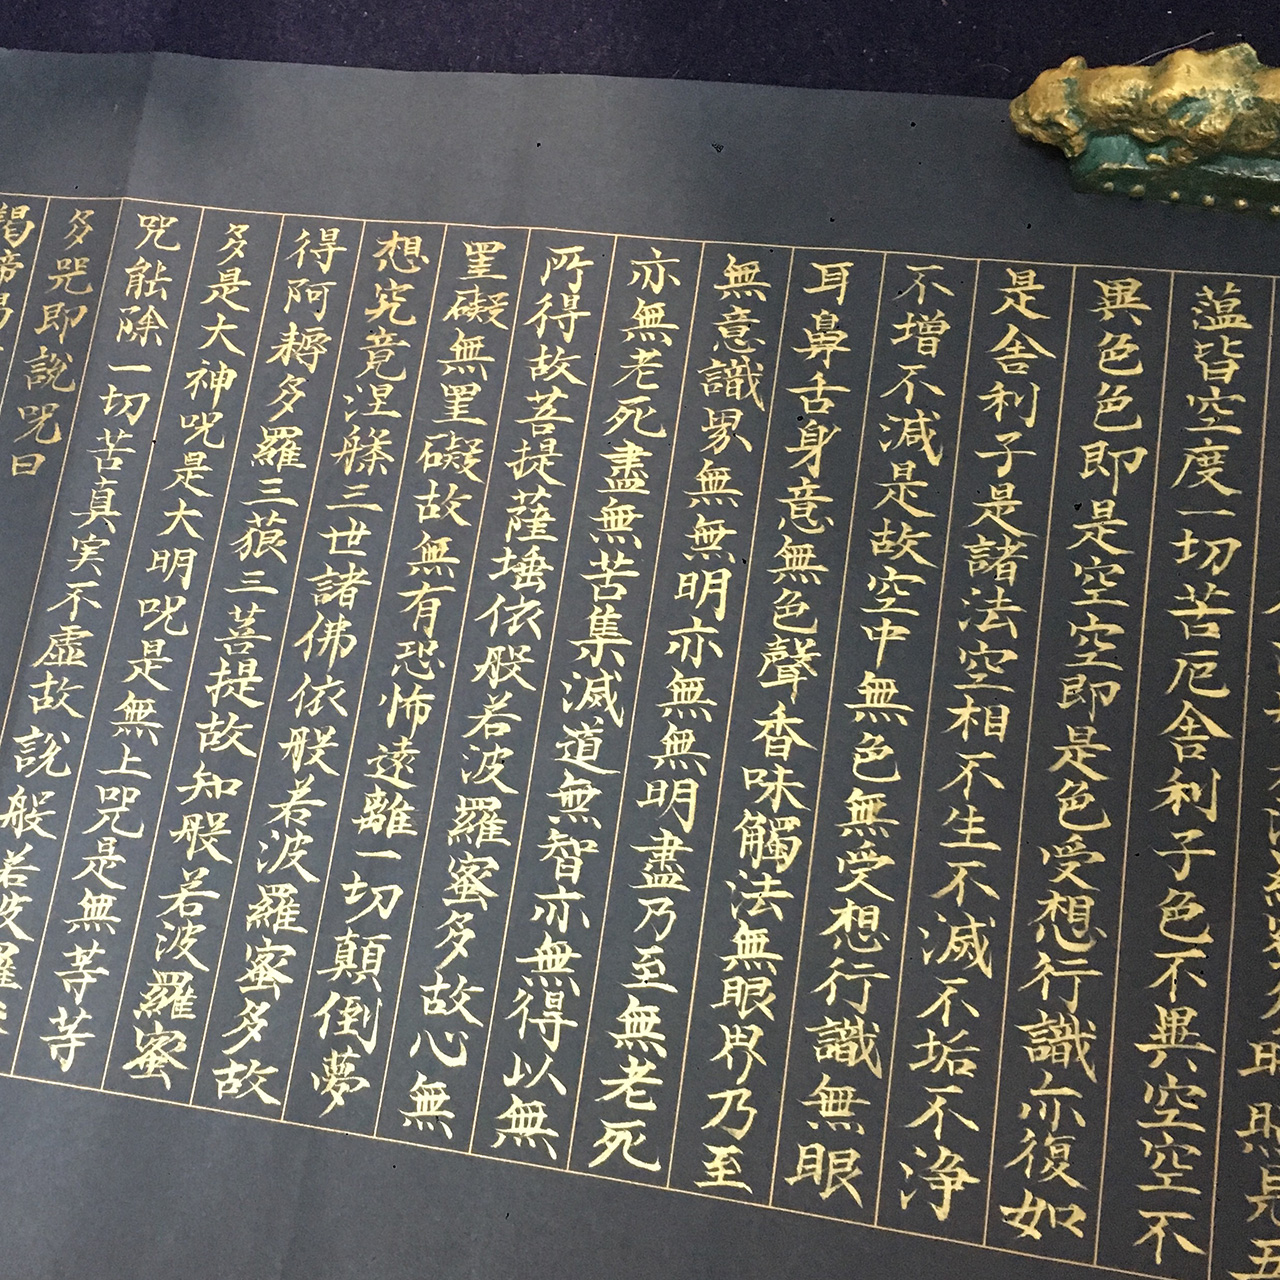 時照見五
薀皆空度一切苦厄舍利子色不異空空不
異色色即是空空即是色受想行識亦復如
是舍利子是諸法空相不生不滅不垢不浄
不增不減是故空中無色無受想行識無眼
耳鼻舌身意無色聲香味觸法無眼界乃至
無意識界無無明亦無無明盡乃至無老死
亦無老死盡無苦集滅道無智亦無得以無
所得故菩提薩埵依般若波羅蜜多故心無
罣礙無罣礙故無有恐怖遠離一切顛倒夢
想究竟涅槃三世諸佛依般若波羅蜜多故
得阿耨多羅三藐三菩提故知般若波羅蜜
多是大神呪是大明呪是無上呪是無等等
呪能除一切苦真実不虛故說般若波羅
多呪即說呪曰
羯諦羯